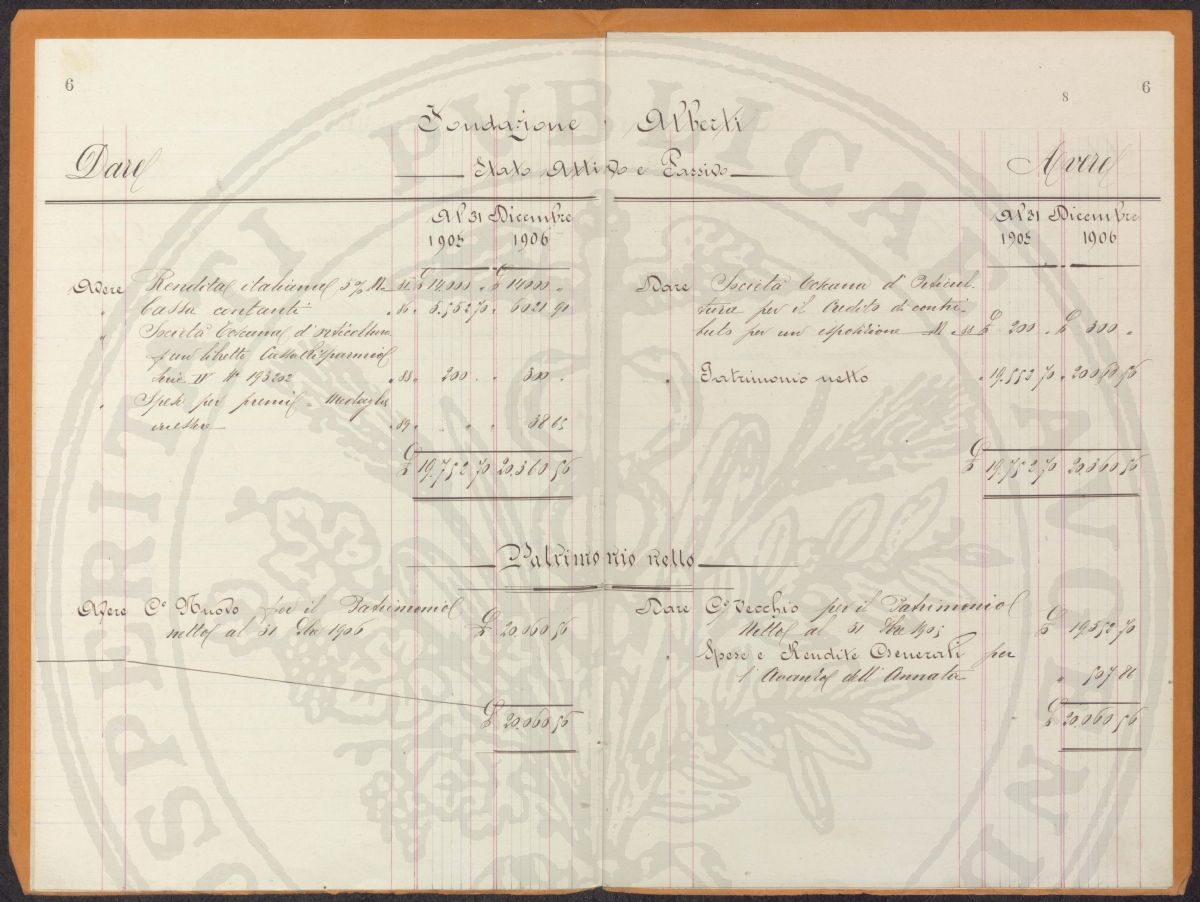 6
8 6
Fondazione Alberti
Dare
Stato Attivo e Passivo
Avere
Al 31 Dicembre
1905 1906
Al 31 Dicembre
1905 1906
Avere Rendita italiana 5% £ 14000 " £ 14000 "
" Cassa contanti " 5.552 70 " 6021 91
" Società Toscana d'orticultura
p un libretto Cassa Risparmio
Serie IV N° 193202 " 88 " 200 " " 300 "
" Spese per premi Medaglie
" 89 " " " " 38 65
£ 19.752 70 20.360 56
Dare Società Toscana d'Orticul-
tura per il Credito di contri-
buto per un esposizione " 88 £ 200 " £ 300 "
" Patrimonio netto " 19.552 70 " 20060 56
£ 19.752 70 20.360 56
Patrimonio netto
Avere Co Nuovo per il Patrimonio
netto al 31 Dbre 1906 £ 20.060 56
£ 20.060 56
Dare Co Vecchio per il Patrimonio
Netto al 31 Dbre 1905 £ 19.552 70
" Spese e Rendite Generali per
l'Avanzo dell'Annata " 507 86
£ 20.060 56
PUBLICAE
SPERITATI
AVGENDAE